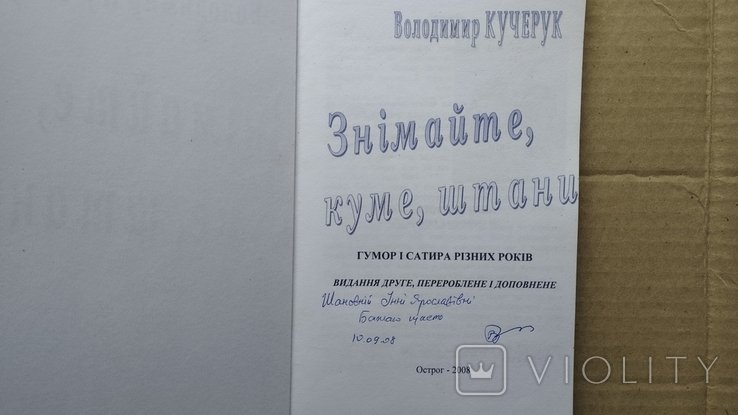 Володимир КУЧЕРУК
Знімайте,
куме, штани
ГУМОР І САТИРА РІЗНИХ РОКІВ
ВИДАННЯ ДРУГЕ, ПЕРЕРОБЛЕНЕ І ДОПОВНЕНЕ
Шановній Інні Ярославівні
Бажаю щастя
10.09.08
Острог - 2008
VIOLITY